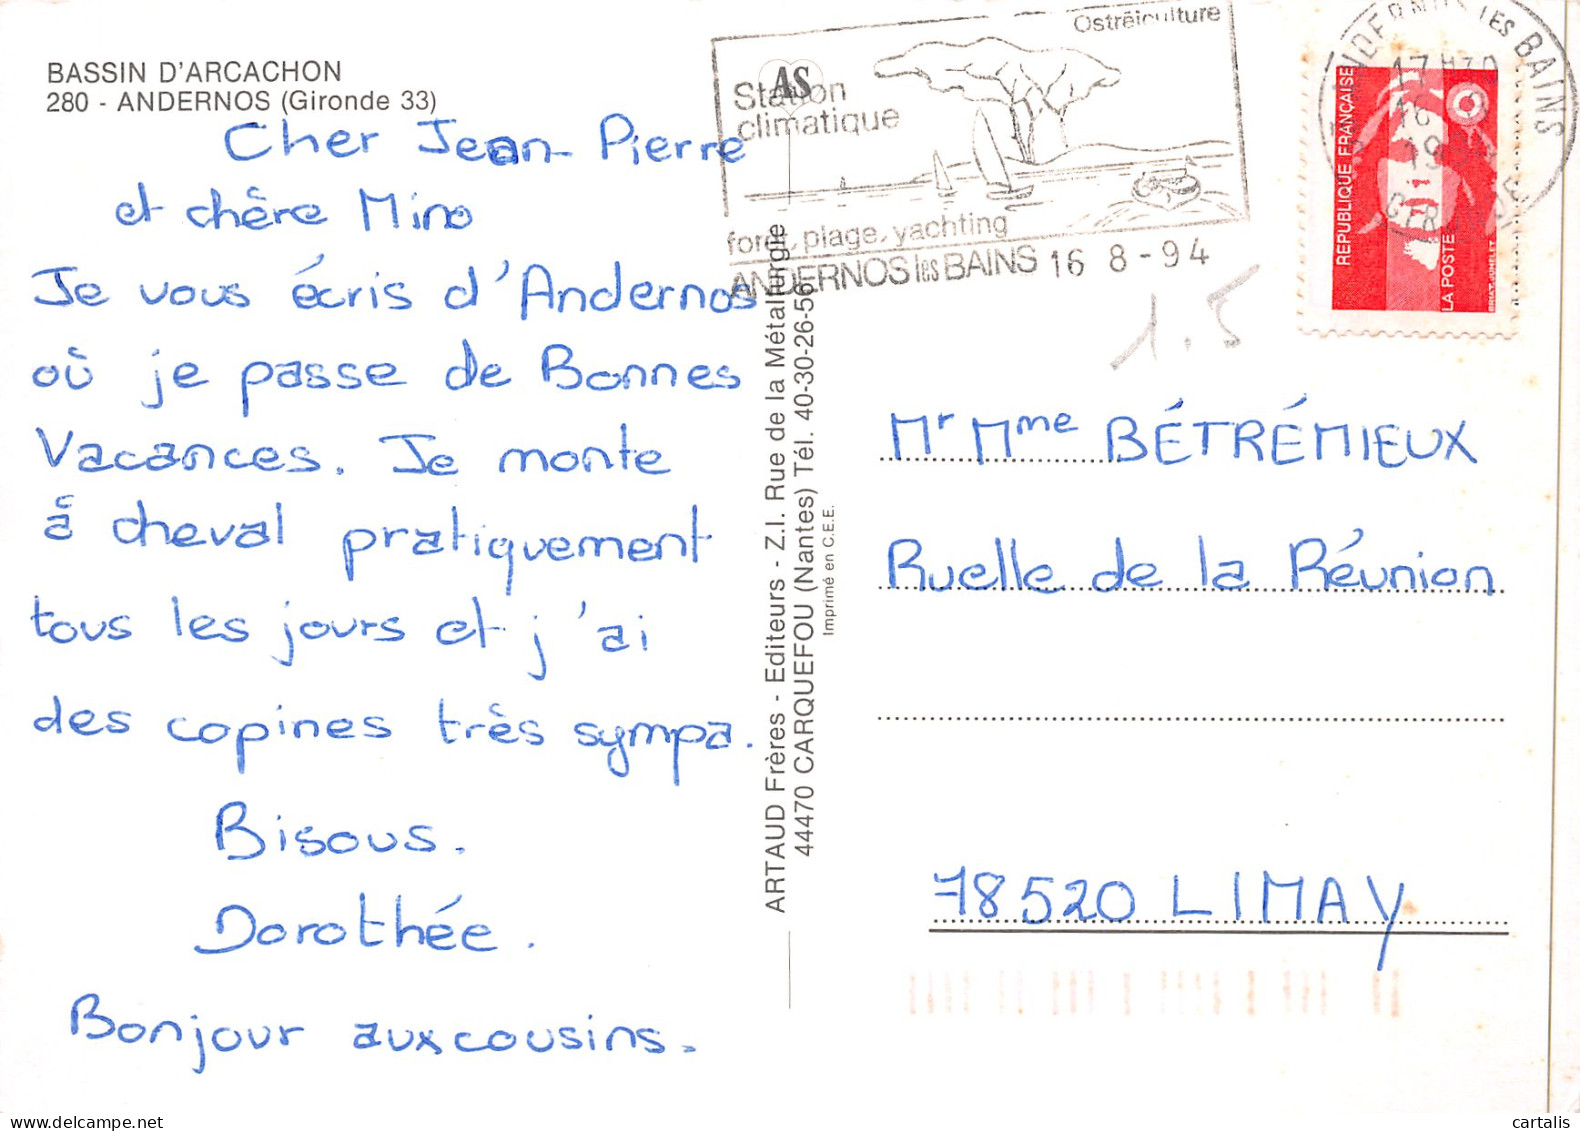 BASSIN D'ARCACHON
280 - ANDERNOS (Gironde 33)
Cher Jean-Pierre
et chère Mino
Je vous écris d'Andernos
où je passe de Bonnes
Vacances. Je monte
à cheval pratiquement
tous les jours et j'ai
des copines très sympa.
Bisous.
Dorothée.
Bonjour aux cousins.
ARTAUD Frères - Editeurs - Z.I. Rue de la Métallurgie
44470 CARQUEFOU (Nantes) Tél. 40-30-26-56
Imprimé en C.E.E.
AS
Ostréiculture
Station
climatique
forêt, plage, yachting
ANDERNOS les BAINS 16 8-94
1.5
ANDERNOS LES BAINS
17 H
16
19
GIRONDE
REPUBLIQUE FRANÇAISE
LA POSTE
BRIAT-JUMELET
Mr Mme BÉTRÉMIEUX
Ruelle de la Réunion
78520 LIMAY
cartalis